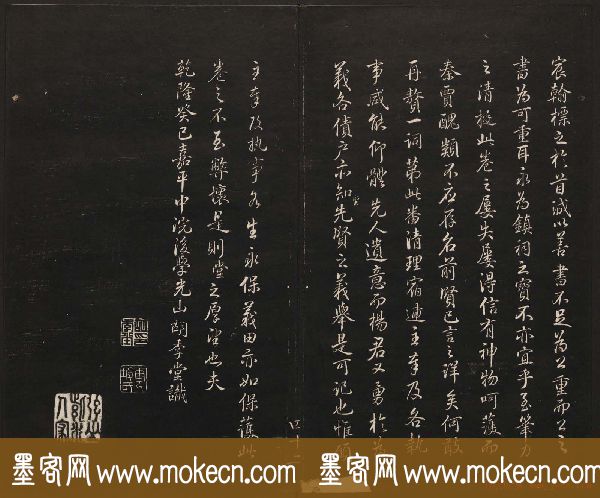 宸翰標立於首誠以善書不足為公重而公之
書為可重耳永為鎮祠之寶不亦宜乎至筆力
之清挺此卷之屢失屢得信有神物呵護而
秦賈醜類不应存名前賢已言之詳矣何敢
再贅一詞第此番清理宿逋主奉及各執
事咸能仰體先人遺意而楊君又勇於為
義各債户亦知先賢之義舉是可記也惟願
四十
主奉及執事各生永保義田亦如保護此
卷之不至弊壞是則堂之厚望也夫
乾隆癸巳嘉平中浣後學光山胡季堂識
墨客网 www.mokecn.com
墨客网 www.mokecn.com